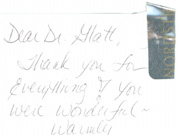 Dear Dr. Glatt,
Thank you for
Everything! You
were wonderful~
Warmly